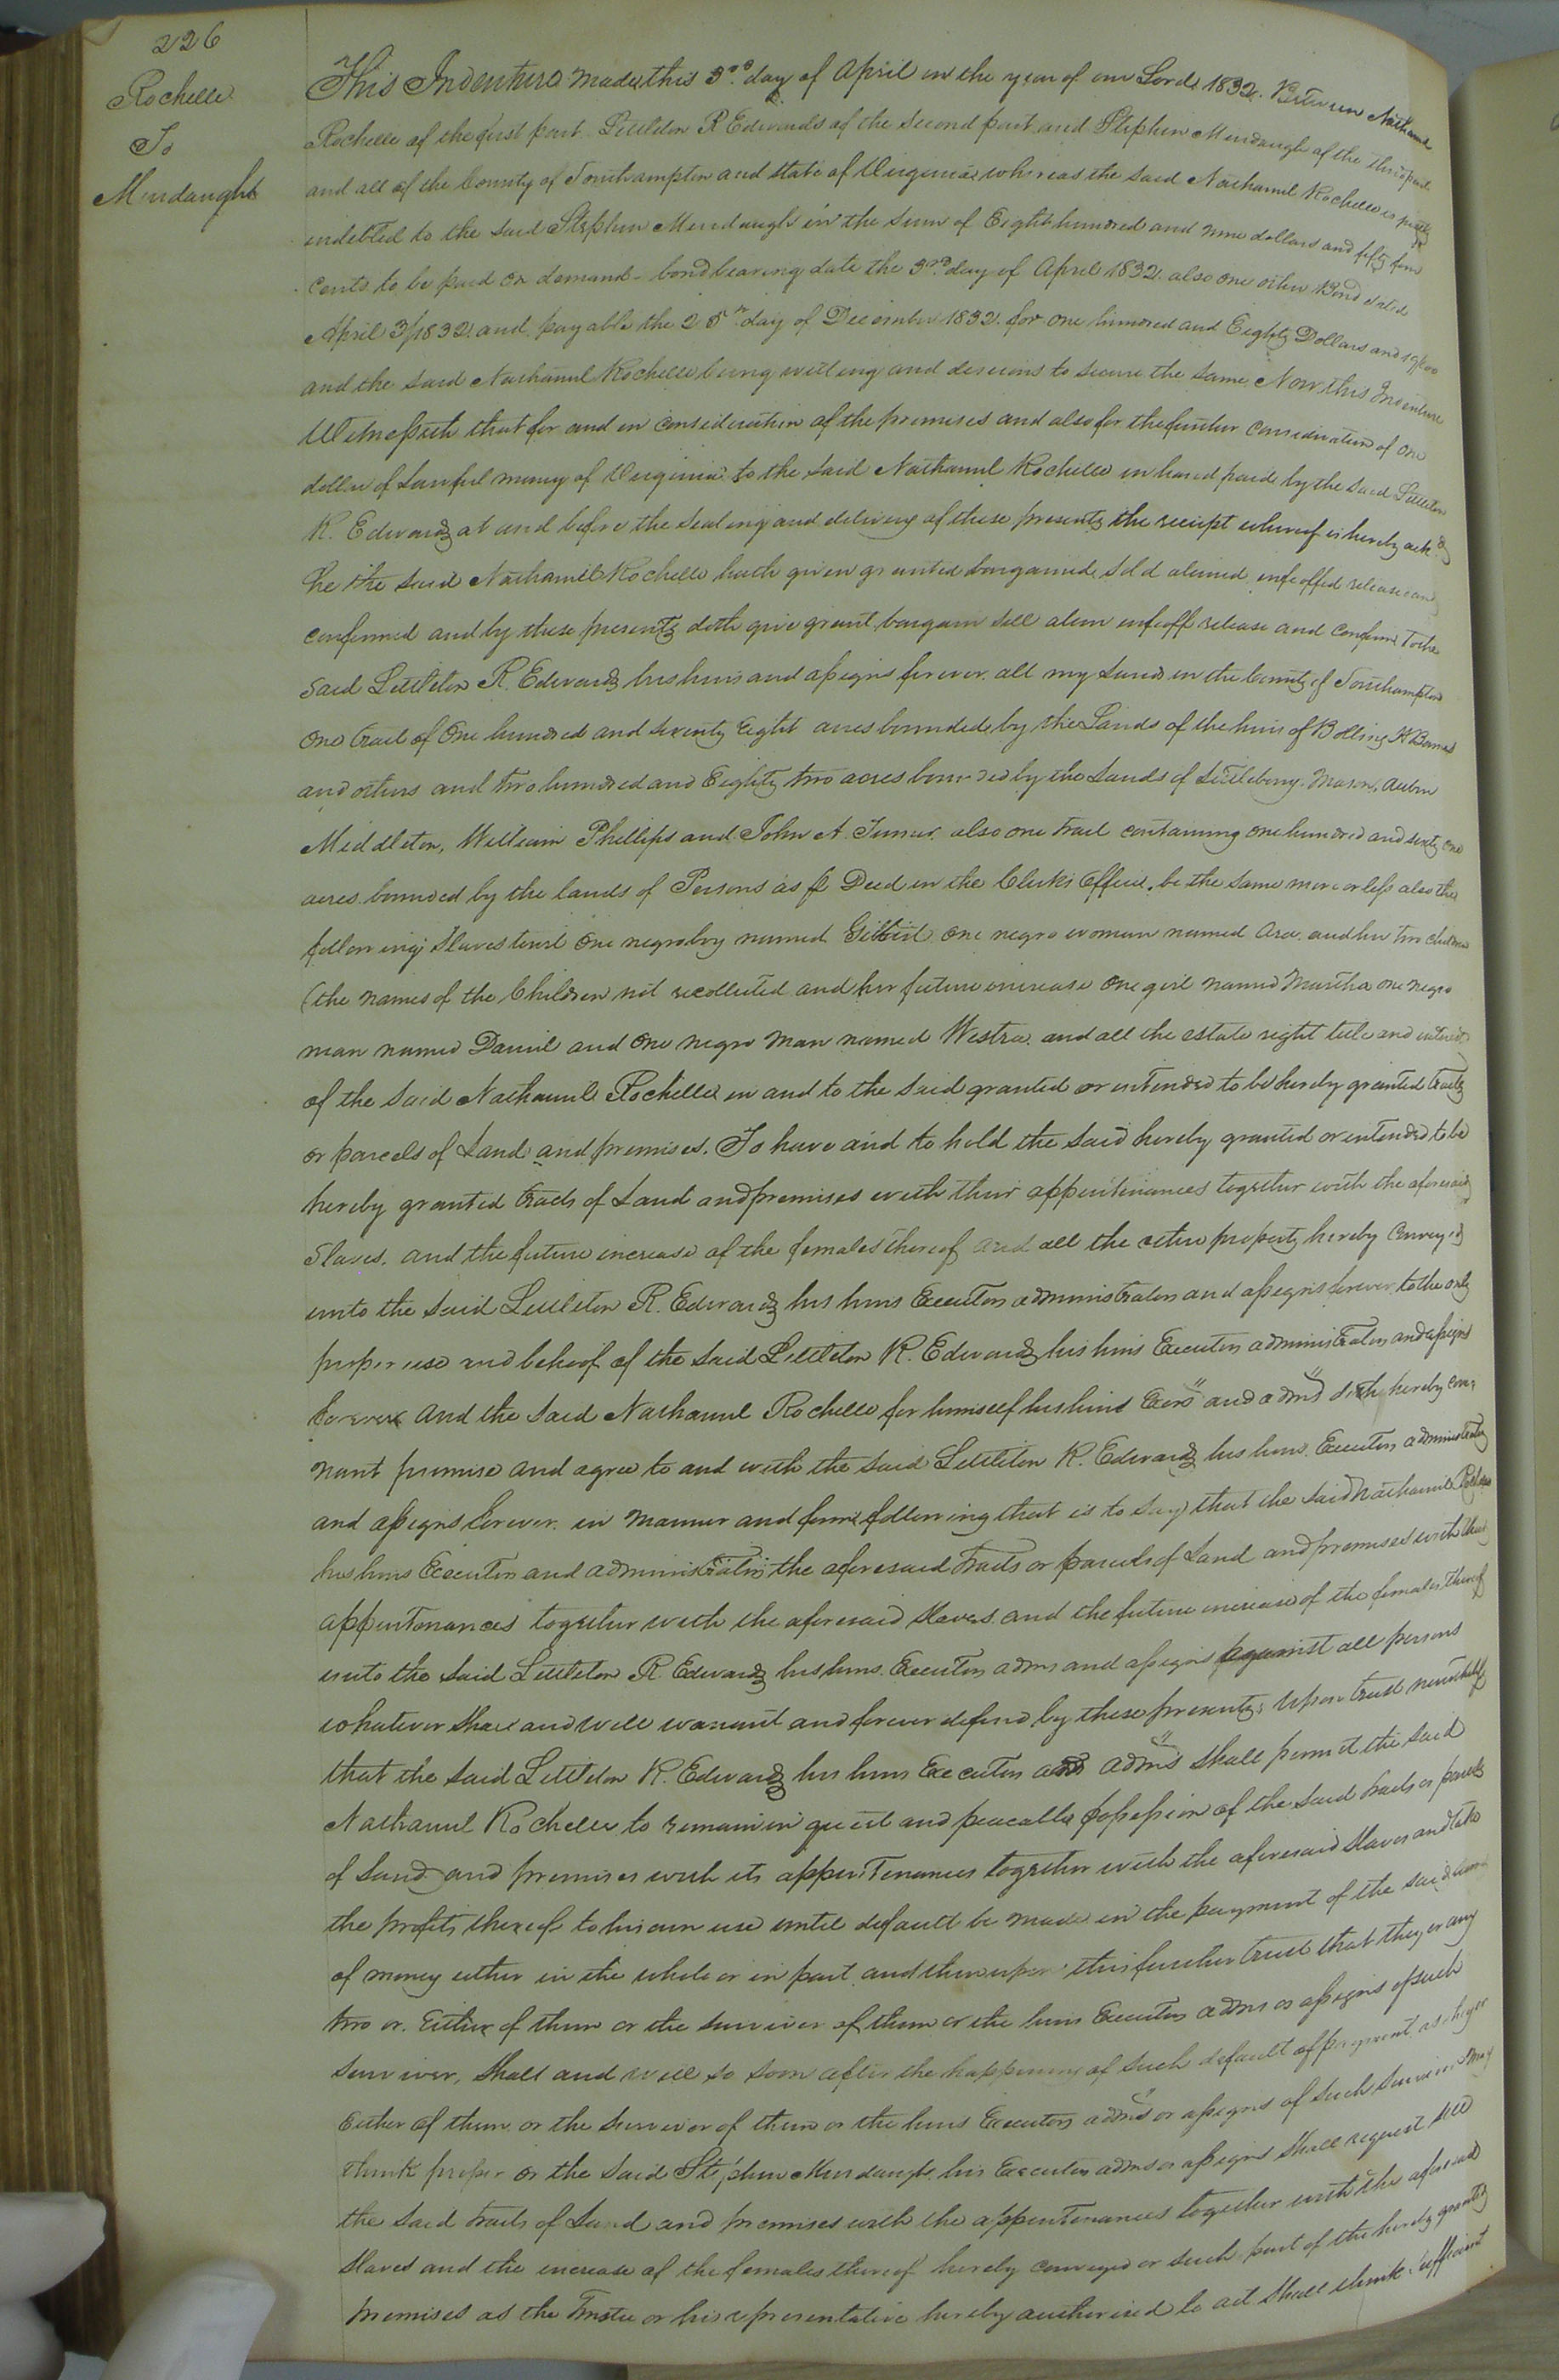 226
Rochelle
To
Murdaugh
This Indenture made this 3rd day of April in the year of our Lord 1832. Between Nathaniel
Rochelle of the first part Littleton R Edwards of the second part and Stephen Murdaugh of the third part
and all of the County of Southampton and State of Virginia, whereas the said Nathaniel Rochelle is justly
indebted to the said Stephen Murdaugh in the sum of Eight hundred and nine dollars and fifty four
cents to be paid on demand - bond bearing date the 3rd day of April 1832. also one other Bond dated
April 3/1832. and payable the 25th day of December 1832. for one hundred and Eighty Dollars and
and the said Nathaniel Rochelle being willing and desirous to secure the same Now this Indenture
Witnesseth that for and in consideration of the premises and also for the further consideration of one
dollar of Lawful money of Virginia to the said Nathaniel Rochelle in hand paid by the said Littleton
R. Edwards at and before the sealing and delivery of these presents the receipt whereof is hereby ackd
he the said Nathaniel Rochelle hath given granted bargained, sold aliened enfeoffed release and
confirmed and by these presents doth give grant bargain sell alien enfeoff release and confirm to the
said Littleton R. Edwards his heirs and assigns forever. all my Lands in the County of Southampton
One tract of One hundred and seventy Eight acres bounded by the Lands of the heirs of Bolling H Barnes
and others and two hundred and Eighty two acres bounded by the Lands of Littleberry Mason,
Middleton, William Phillips and John A. Turner. also one tract containing one hundred and sixty one
acres bounded by the lands of Persons as pr Deed in the Clerks Office, be the same more or less also the
following Slaves towit One negro boy named one negro woman named Ara. and her two children
(the names of the Children not recollected and her future increase One girl named Martha one negro
man named Daniel and One negro Man named Westra. and all the estate right title and interest
of the said Nathaniel Rochelle in and to the said granted or intended to be hereby granted tracts
or parcels of Land and premises. To have and to hold the said hereby granted or intended to be
hereby granted tracts of Land and premises with their appurtenances together with the aforesaid
Slaves. and the future increase of the females thereof and all the other property hereby conveyed
unto the said Littleton R. Edwards his heirs Executors administrators and assigns forever. to the only
proper use and behoof of the said Littleton R. Edwards his heirs Executors administrators and assigns
forever And the said Nathaniel Rochelle for himself his heirs Exors and adms doth hereby cove
nant promise and agree to and with the said Littleton R. Edwards his heirs Executors administrators
and assigns forever. in manner and form following that is to say that the said Nathaniel Rochelle
his heirs Executors and administrators the aforesaid tracts or parcels of Land and premises with their
appurtenances together with the aforesaid slaves and the future increase of the females thereof
unto the said Littleton R. Edwards his heirs Executors adms and assigns against all persons
whatever shall and will warrant and forever defend by these presents; Upon trust nevertheless
that the said Littleton R. Edwards his heirs Executors and adms shall permit the said
Nathaniel Rochelle to remain in quiet and peacable possession of the said tracts or parcels
of Land and premises with its appurtenances together with the aforesaid slaves and take
the profits thereof to his own use until default be made in the payment of the said sums
of money either in the whole or in part and then upon this further trust that they or any
two or either of them or the survivor of them or the heirs Executors adms or assigns of such
survivor, shall and will so soon after the happening of such default of payment, as they or
Either of them or the survivor of them or the heirs Executors adms or assigns of such survivor may
think proper or the said Stephen Murdaugh, his Executors adms or assigns shall request sell
the said tracts of Land and premises with the appurtenances together with the aforesaid
slaves and the increase of the females thereof hereby conveyed or such part of the hereby granted
premises as the Trustee or his representative hereby authorised to act shall think sufficient